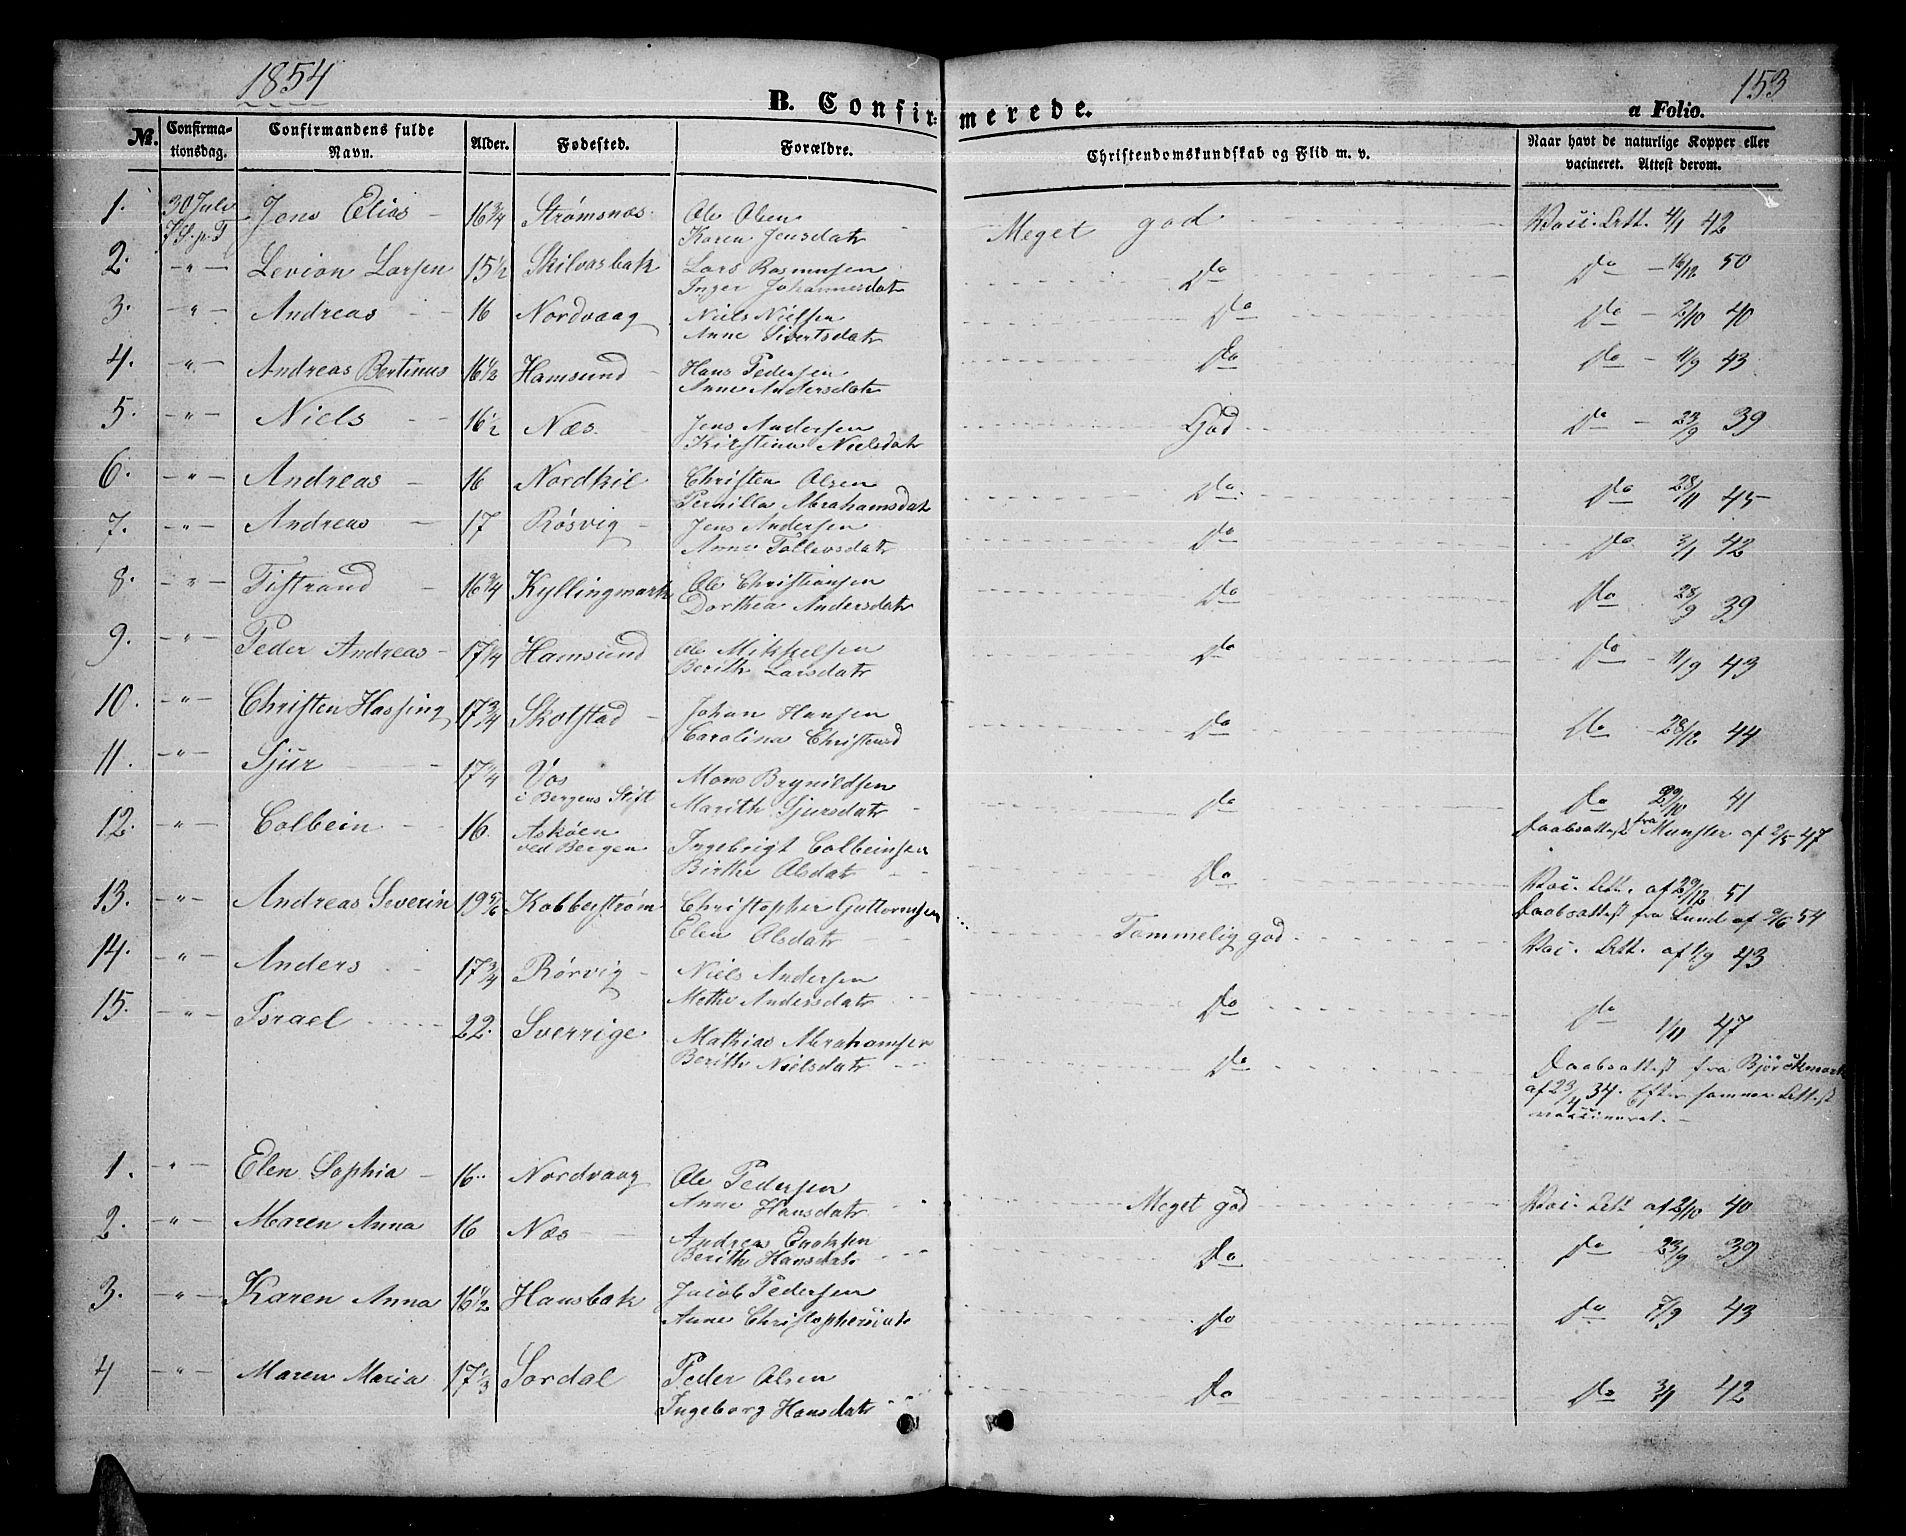 1854
153
B. Confirmerede.
a Folio.
No.
Confirmationsdag.
Confirmandens fulde Navn.
Alder.
Fødested.
Forældre.
Christendomskundskab og Flid m. v.
Naar havt de naturlige Kopper eller vacineret. Attest derom.
1. 30 Juli Jens Elias 16 3/4 Strømsnæs Ole Olsen Meget god Vaci. Att. 4/1 42
7 S. p. T Karen Jensdatr
2. -"- Levion Larsen 15 1/2 Skilvasbak Lars Rasmusen Do Do 16/12 50
Inger Johannesdatr
3. -"- Andreas 16 Nordvaag Niels Nielsen Do Do 2/10 40
Anne Sivertsdatr
4. -"- Andreas Bertinus 16 1/2 Hamsund Hans Pedersen Do Do 11/9 43
Anne Andersdatr
5. -"- Niels 16 1/2 Næs Jens Andersen God Do 23/9 39
Kirstina Nielsdatr
6. -"- Andreas 16 Nordkil Christen Olsen Do Do 28/11 45
Pernilla Abrahamsdatr
7. -"- Andreas 17 Røsvig Jens Andersen Do Do 3/1 42
Anne Tollevsdatr
8. -"- Tistrand 16 3/4 Kyllingmark Ole Christiansen Do Do 28/9 39
Dorthea Andersdatr
9. -"- Peder Andreas 17 1/4 Hamsund Ole Mikkelsen Do Do 11/9 43
Berith Larsdatr
10. -"- Christen Hassing 17 3/4 Skotstad Johan Hansen Do Do 28/12 44
Carolina Christensd
11. -"- Sjur 17 1/4 Vos Mons Brynildsen Do Do 29/10 41
i Bergens Stift Marith Sjursdatr
12. -"- Colbein 16 Askøen Ingebrigt Colbeinsen Do Daabsattest fra Munster af 2/5 47
ved Bergen Birthe Olsdatr Vaci. Att. af 29/12 51
13. -"- Andreas Severin 19 5/6 Kobberstrøm Christopher Guttormsen Tammelig god Daabsattest fra Lund af 9/6 54
Elen Olsdatr Vaci. Att. af 1/9 43
14. -"- Anders 17 3/4 Rørvig Niels Andersen Do Do 1/11 47
Methe Andersdatr
15. -"- Israel 22. Sverrige Mathias Abrahamsen Do Daabsattest fra Bjørckmark
Berith Nielsdatr af 23/4 34. Efter samme Attest
vaccineret.
1. -"- Elen Sophia 16 Nordvaag Ole Pedersen Meget god Vaci. Att af 2/10 40
Anne Hansdatr
2. -"- Maren Anna 16 Næs Andreas Enoksen Do Do 23/9 39
Berith Hansdatr
3. -"- Karen Anna 16 1/2 Hansbak Jacob Pedersen Do Do 7/9 43
Anne Christophersdatr
4 -"- Maren Maria 17 1/3 Sørdal Peder Olsen Do Do 3/1 42
Ingeborg Hansdatr